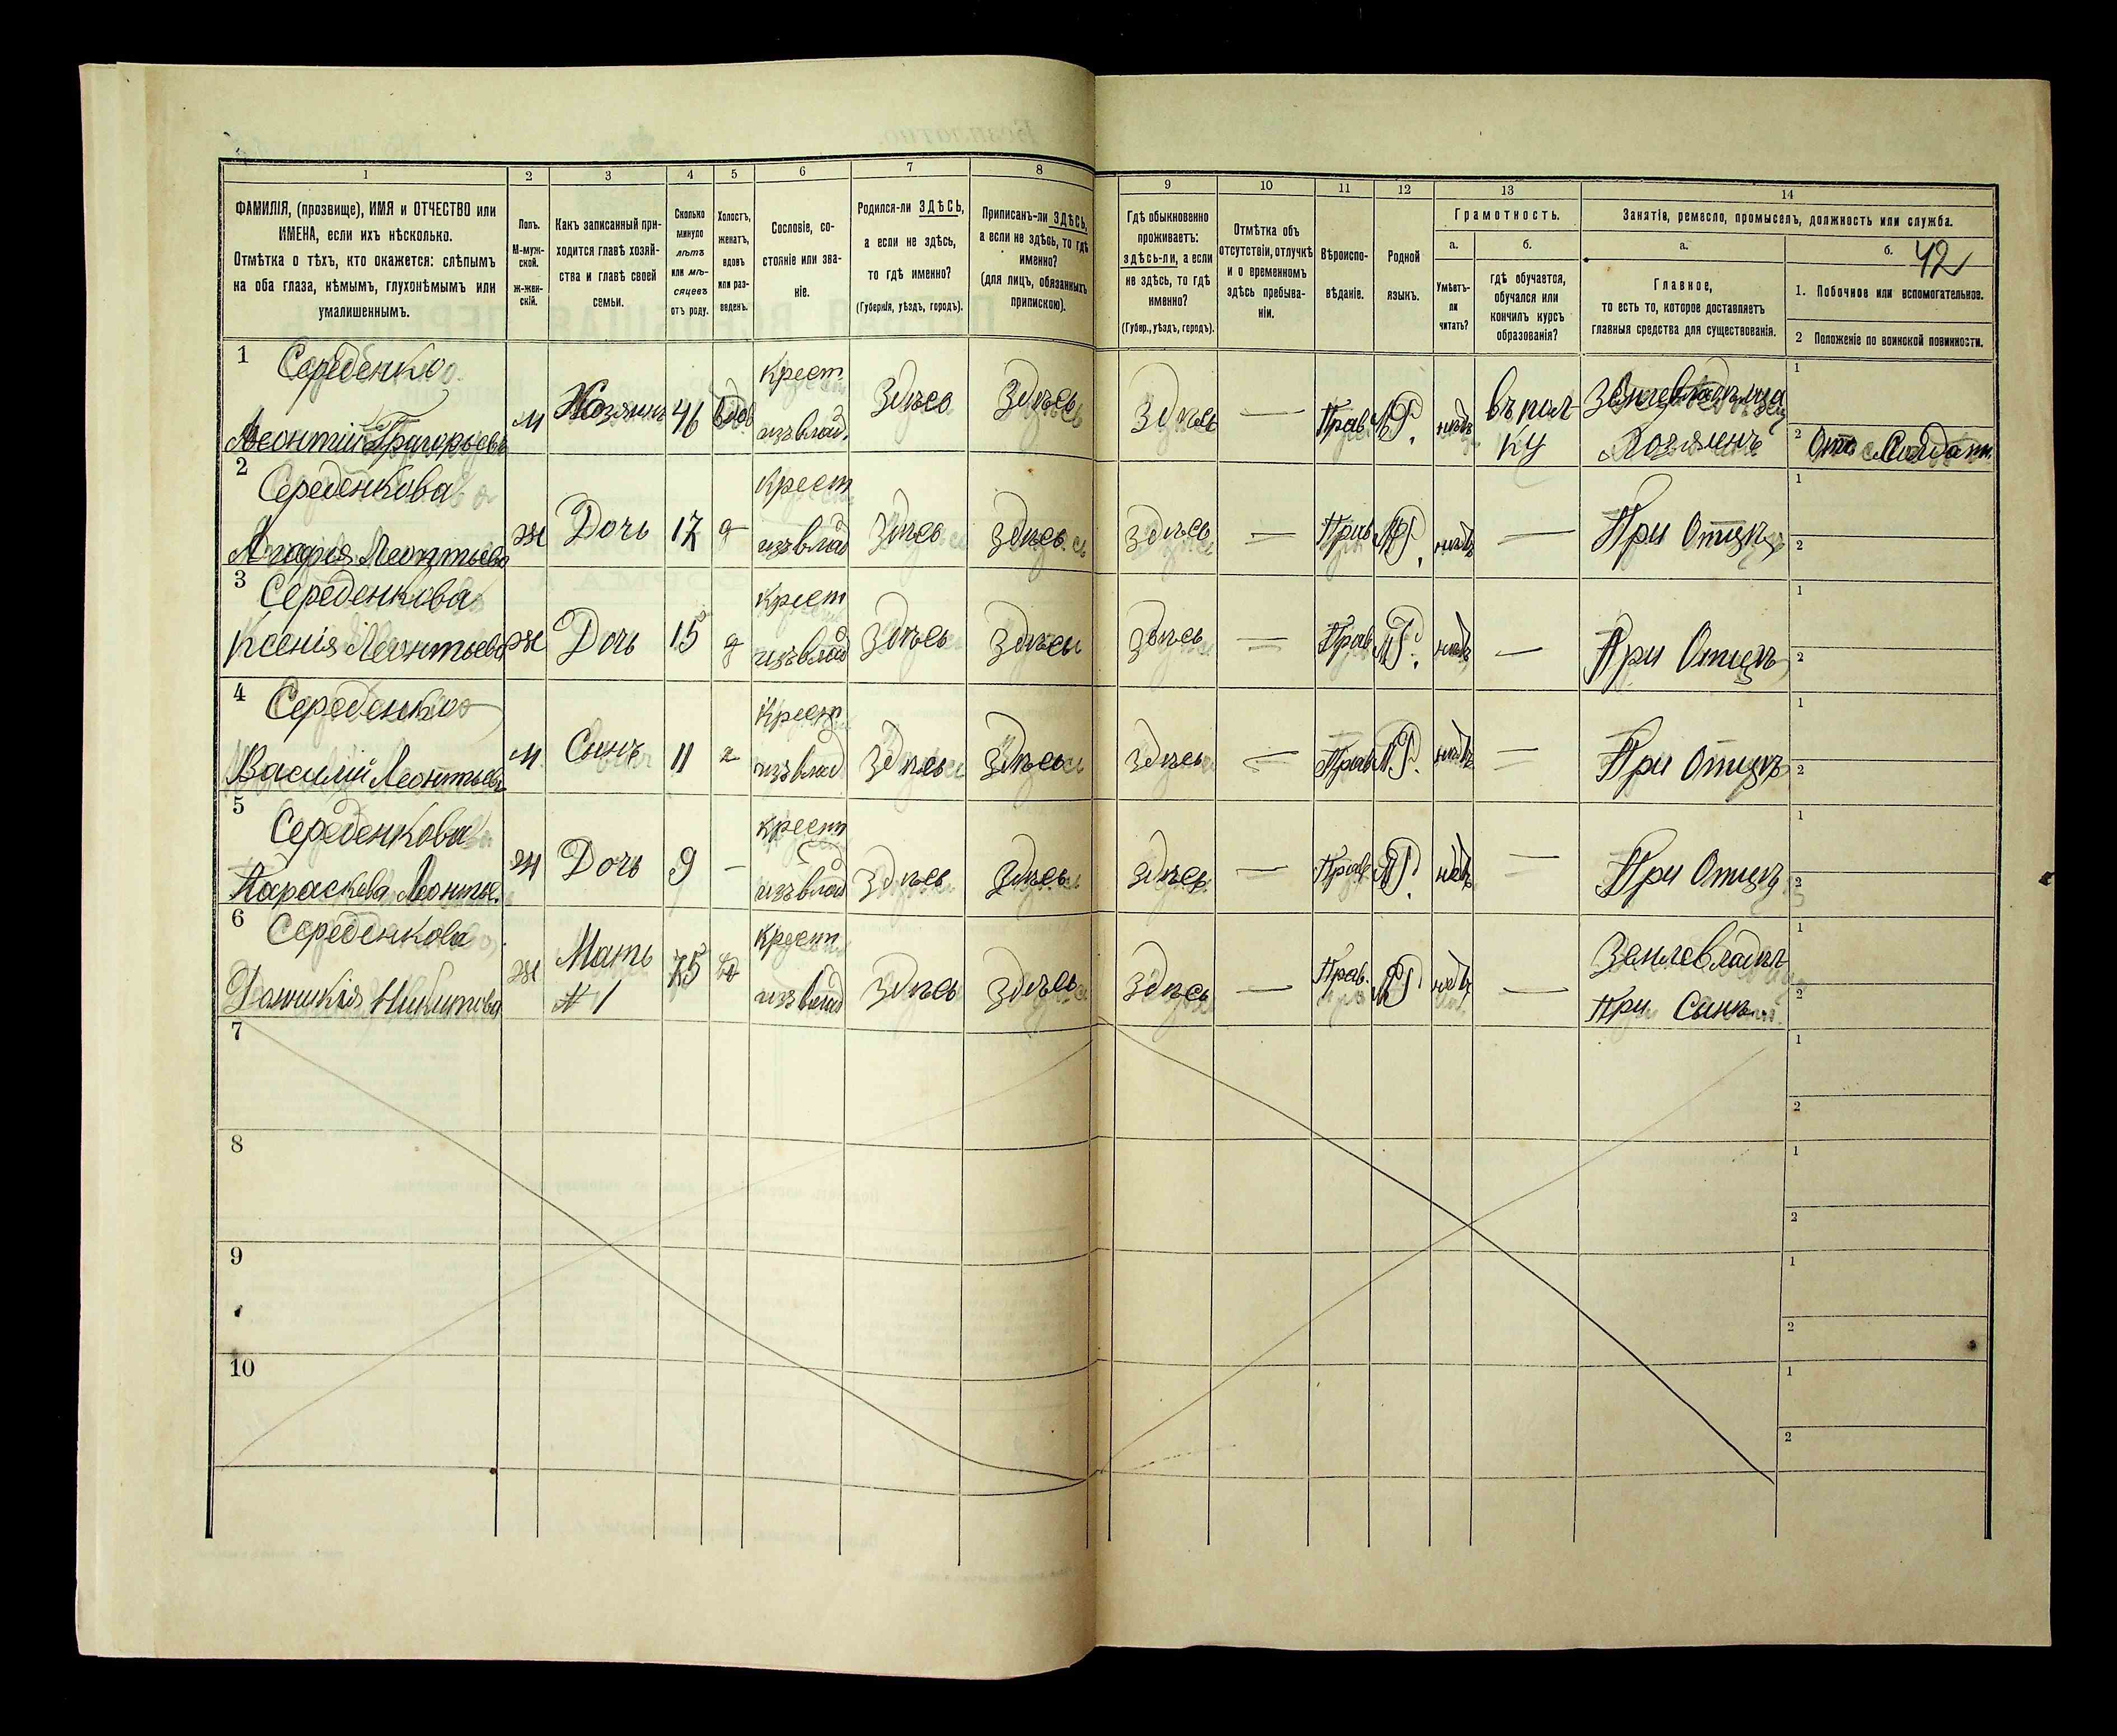 1 2 3 4 5 6 7 8 9 10 11 12 13 14
ФАМИЛІЯ, (прозвище), ИМЯ и ОТЧЕСТВО или
ИМЕНА, если ихъ нѣсколько.
Отмѣтка о тѣхъ, кто окажется: слѣпымъ
на оба глаза, нѣмымъ, глухонѣмымъ или
умалишеннымъ.
Полъ.
М-муж-
ской.
Ж-жен-
скій.
Какъ записанный при-
ходится главѣ хозяй-
ства и главѣ своей
семьи.
Сколько
минуло
лѣтъ
или мѣ-
сяцевъ
отъ роду.
Холостъ,
женатъ,
вдовъ
или раз-
веденъ.
Сословіе, со-
стояніе или зва-
ніе.
Родился-ли ЗДѢСЬ,
а если не здѣсь,
то гдѣ именно?
(Губернія, уѣздъ, городъ).
Приписанъ-ли ЗДѢСЬ,
а если не здѣсь, то гдѣ
именно?
(для лицъ, обязанныхъ
припискою).
Гдѣ обыкновенно
проживаетъ:
здѣсь-ли, а если
не здѣсь, то гдѣ
именно?
(Губер., уѣздъ, городъ).
Отмѣтка объ
отсутствіи, отлучкѣ
и о временномъ
здѣсь пребыва-
ніи.
Вѣроиспо-
вѣданіе.
Родной
языкъ.
Грамотность.
а.
Умѣетъ-
ли
читать?
б.
гдѣ обучается,
обучался или
кончилъ курсъ
образованія?
Занятія, ремесло, промыселъ, должность или служба.
а.
Главное,
то есть то, которое доставляетъ
главныя средства для существованія.
б. 42
1. Побочное или вспомогательное.
2 Положеніе по воинской повинности.
1 Середенко
Леонтій Григорьевъ
м Хозяинъ 46 вдов
крест
изъ влад.
Здѣсь Здѣсь Здѣсь — Прав М.Р. нѣтъ
въ пол-
ку
Хозяинъ
1
2 Отс Солдат
2 Середенкова
Агафія Леонтьева
ж Дочь 17 д
крест
изъ влад
Здѣсь Здѣсь Здѣсь — Прав М.Р. нѣтъ — При Отцѣ
1
2
3 Середенкова
Ксенія Леонтьева
ж Дочь 15 д
крест
изъ влад
Здѣсь Здѣсь Здѣсь — Прав М.Р. нѣтъ — При Отцѣ
1
2
4 Середенко
Василій Леонтьевъ
м Сынъ 11
крест
изъ влад
Здѣсь Здѣсь Здѣсь — Прав М.Р. нѣтъ — При Отцѣ
1
2
5 Середенкова
Параскева Леонтье.
ж Дочь 9 —
крест
изъ влад
Здѣсь Здѣсь Здѣсь — Прав М.Р. нѣтъ — При Отцѣ
1
2
6 Середенкова
Никитова
ж Мать
№ 1
75
крест
изъ влад
Здѣсь Здѣсь Здѣсь — Прав. М.Р. нѣтъ —
Землевладѣ
При Сынѣ
1
2
7
1
2
8
1
2
9
1
2
10
1
2